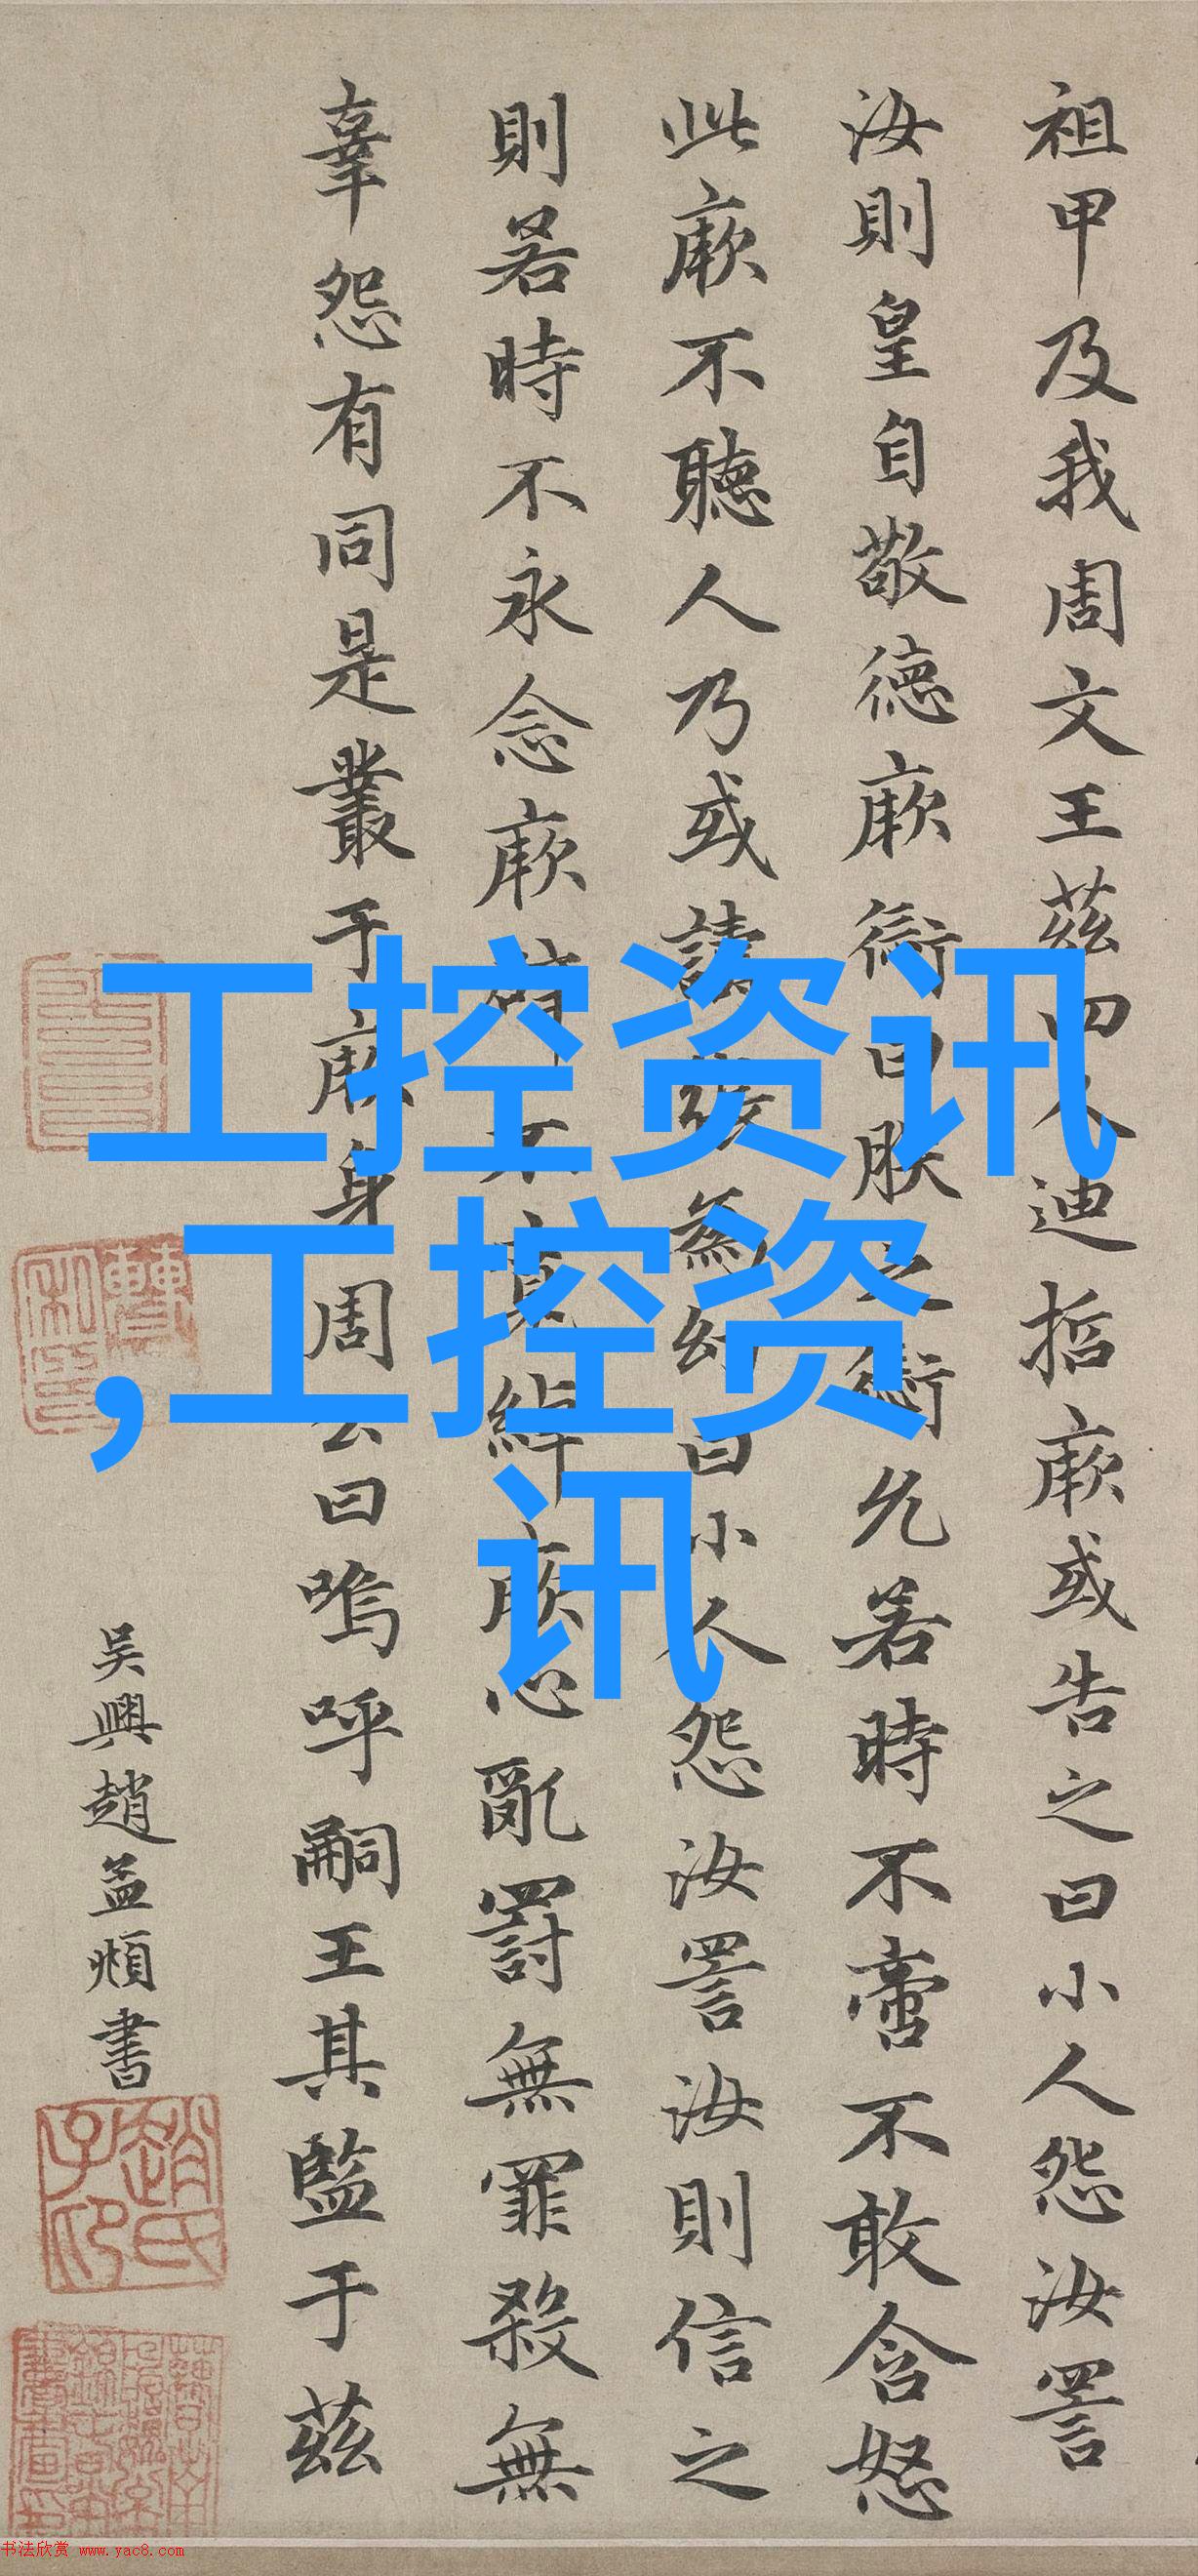 祖甲及我周文王茲四人迪哲厥或告之曰小人怨汝詈
汝則皇自敬德厥愆曰朕之愆允若時不啻不敢含怒
此厥不聽人乃或譸張為幻曰小人怨汝詈汝則信之
則若時不永念厥辟不寬綽厥心亂罰無罪殺無
辜怨有同是叢于厥身周公曰嗚呼嗣王其監于茲
吳興趙孟頫書
趙氏子昂
工控资讯
,工控资
讯
书法欣赏 www.yac8.com